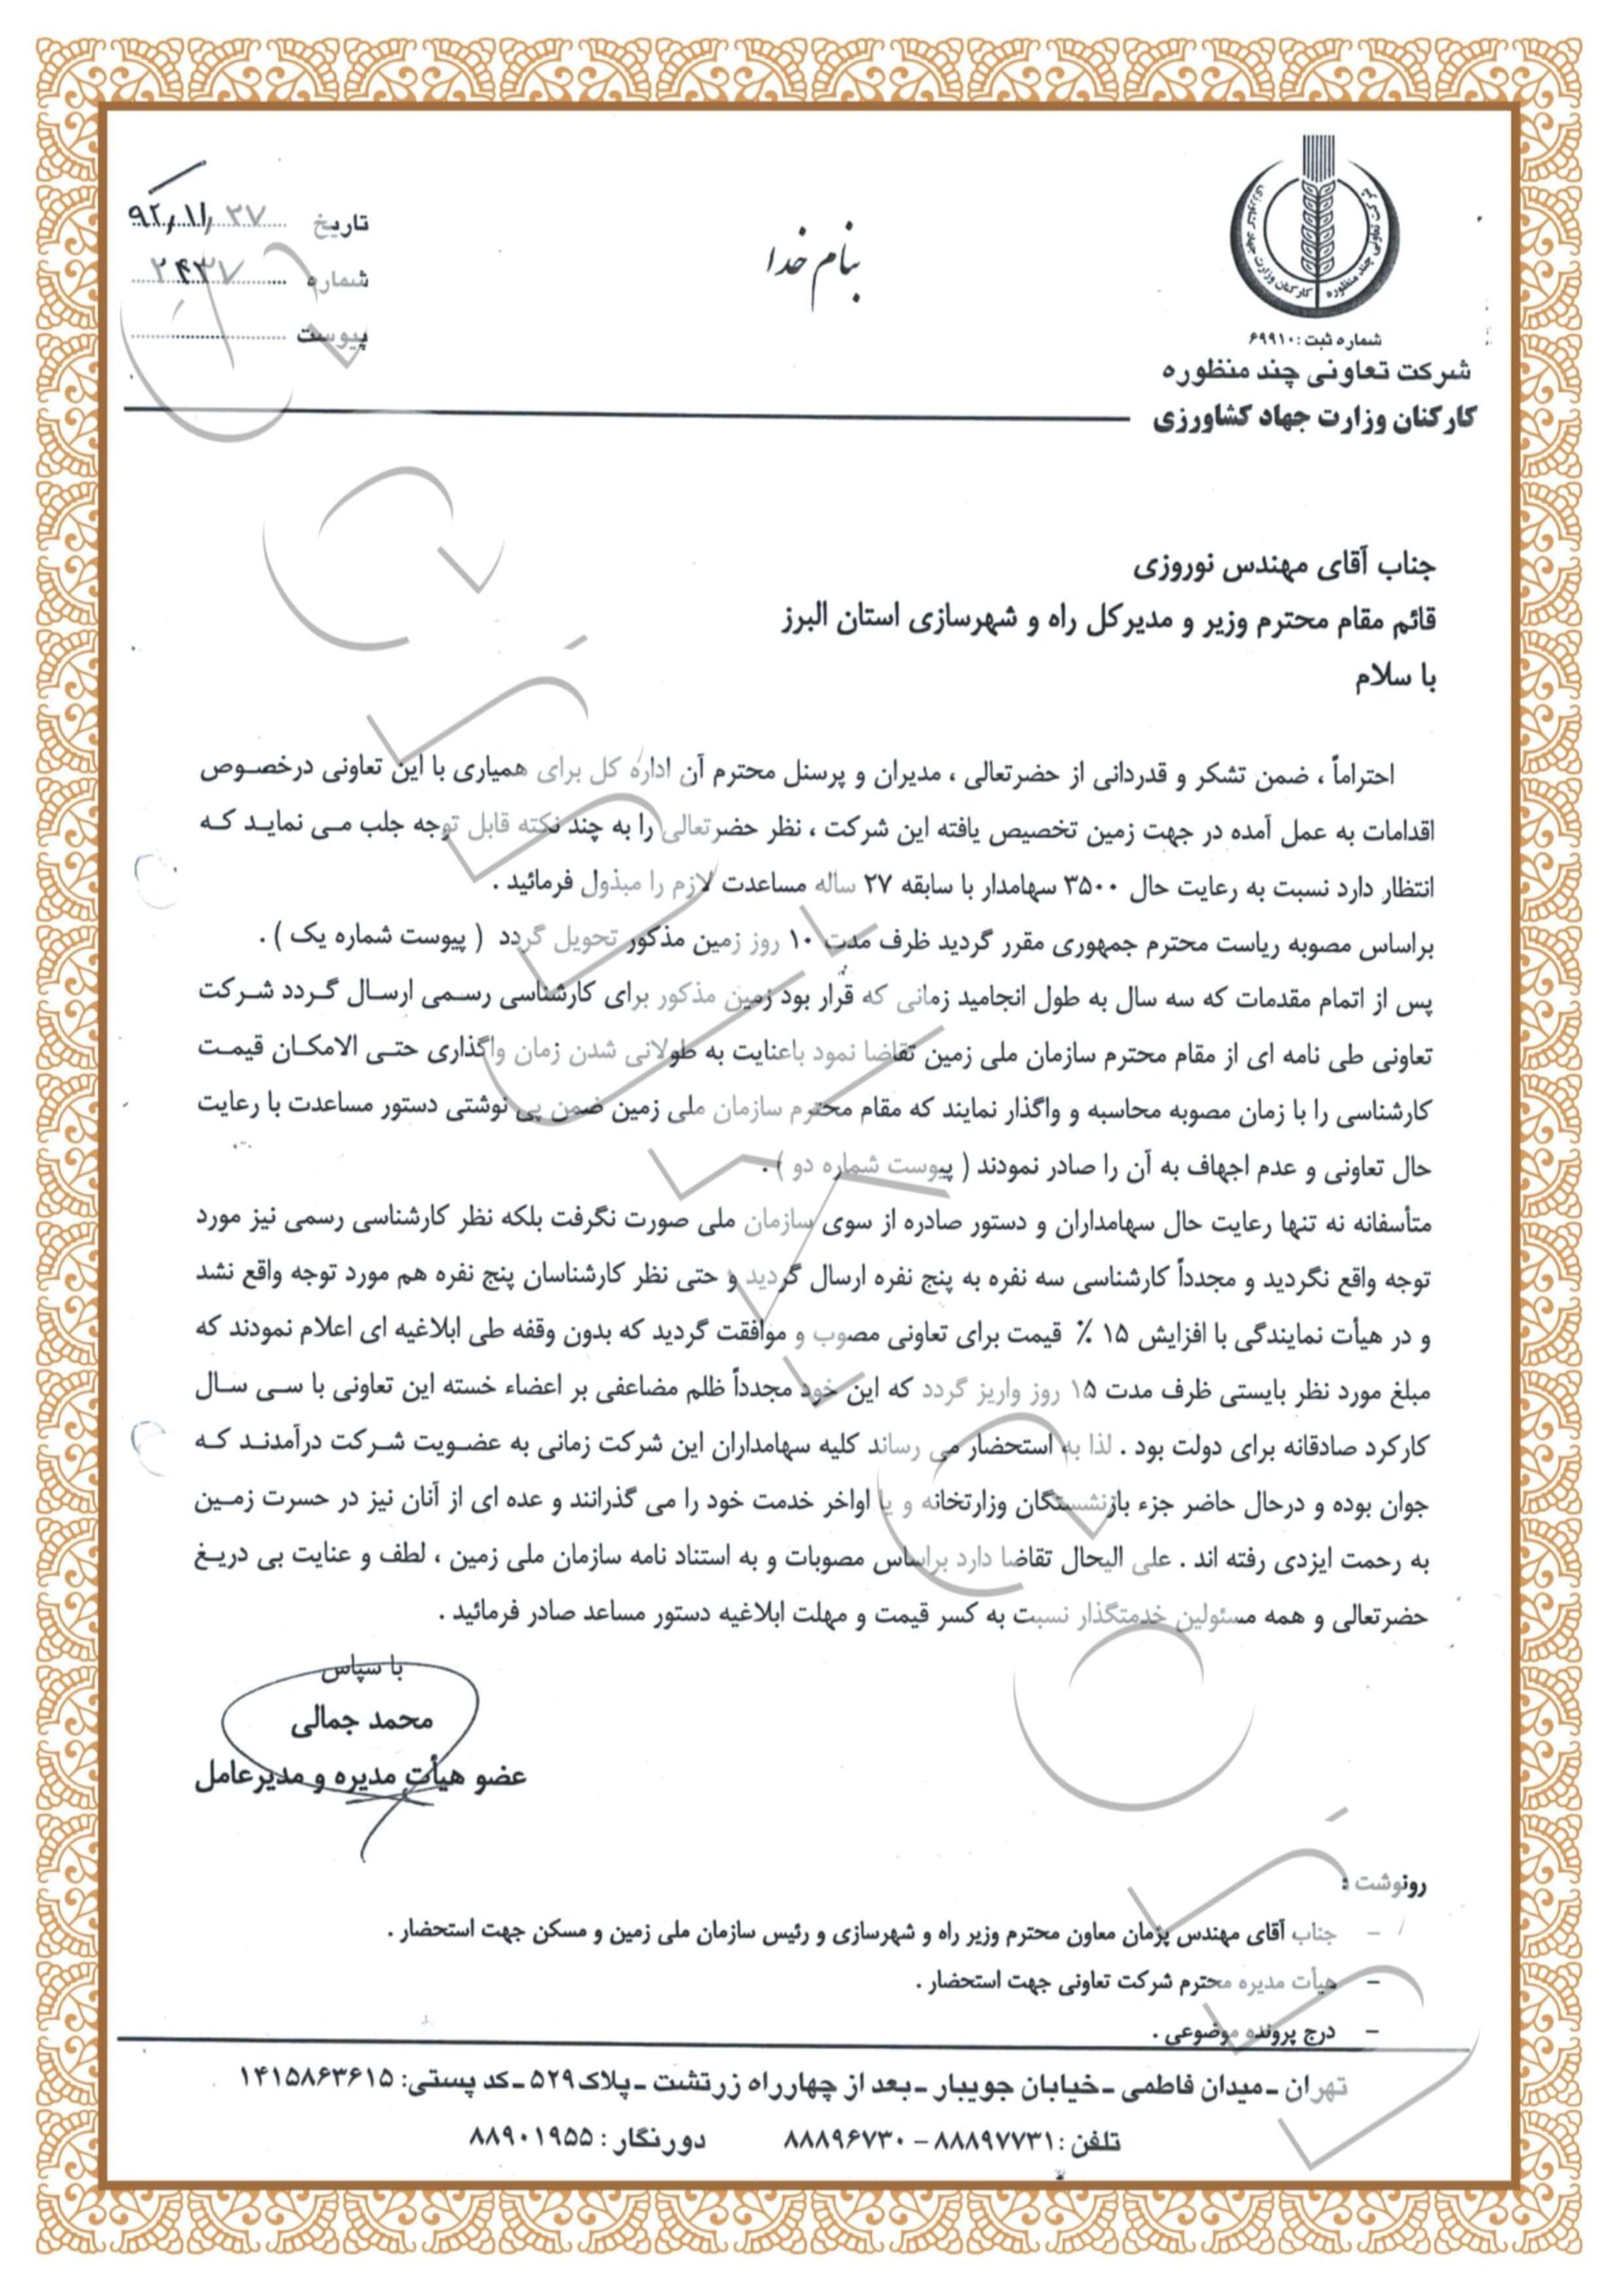 بنام خدا
شرکت تعاونی چند منظوره کارکنان وزارت جهاد کشاورزی
شماره ثبت : ۶۹۹۱۰
شرکت تعاونی چند منظوره
کارکنان وزارت جهاد کشاورزی
تاریخ ۹۲/۱۱/۲۷
شماره
پیوست
جناب آقای مهندس نوروزی
قائم مقام محترم وزیر و مدیرکل راه و شهرسازی استان البرز
با سلام
احتراماً ، ضمن تشکر و قدردانی از حضرتعالی ، مدیران و پرسنل محترم آن اداره کل برای همیاری با این تعاونی درخصوص
اقدامات به عمل آمده در جهت زمین تخصیص یافته این شرکت ، نظر حضرتعالی را به چند نکته قابل توجه جلب می نماید که
انتظار دارد نسبت به رعایت حال ۳۵۰۰ سهامدار با سابقه ۲۷ ساله مساعدت لازم را مبذول فرمائید .
براساس مصوبه ریاست محترم جمهوری مقرر گردید ظرف مدت ۱۰ روز زمین مذکور تحویل گردد ( پیوست شماره یک ) .
پس از اتمام مقدمات که سه سال به طول انجامید زمانی که قرار بود زمین مذکور برای کارشناسی رسمی ارسال گردد شرکت
تعاونی طی نامه ای از مقام محترم سازمان ملی زمین تقاضا نمود باعنایت به طولانی شدن زمان واگذاری حتی الامکان قیمت
کارشناسی را با زمان مصوبه محاسبه و واگذار نمایند که مقام محترم سازمان ملی زمین ضمن پی نوشتی دستور مساعدت با رعایت
حال تعاونی و عدم اجهاف به آن را صادر نمودند ( پیوست شماره دو ) .
متأسفانه نه تنها رعایت حال سهامداران و دستور صادره از سوی سازمان ملی صورت نگرفت بلکه نظر کارشناسی رسمی نیز مورد
توجه واقع نگردید و مجدداً کارشناسی سه نفره به پنج نفره ارسال گردید و حتی نظر کارشناسان پنج نفره هم مورد توجه واقع نشد
و در هیأت نمایندگی با افزایش ۱۵ ٪ قیمت برای تعاونی مصوب و موافقت گردید که بدون وقفه طی ابلاغیه ای اعلام نمودند که
مبلغ مورد نظر بایستی ظرف مدت ۱۵ روز واریز گردد که این خود مجدداً ظلم مضاعفی بر اعضاء خسته این تعاونی با سی سال
کارکرد صادقانه برای دولت بود . لذا به استحضار می رساند کلیه سهامداران این شرکت زمانی به عضویت شرکت درآمدند که
جوان بوده و درحال حاضر جزء بازنشستگان وزارتخانه و یا اواخر خدمت خود را می گذرانند و عده ای از آنان نیز در حسرت زمین
به رحمت ایزدی رفته اند . علی الیحال تقاضا دارد براساس مصوبات و به استناد نامه سازمان ملی زمین ، لطف و عنایت بی دریغ
حضرتعالی و همه مسئولین خدمتگذار نسبت به کسر قیمت و مهلت ابلاغیه دستور مساعد صادر فرمائید .
با سپاس
محمد جمالی
عضو هیأت مدیره و مدیرعامل
رونوشت :
– جناب آقای مهندس پژمان معاون محترم وزیر راه و شهرسازی و رئیس سازمان ملی زمین و مسکن جهت استحضار .
– هیأت مدیره محترم شرکت تعاونی جهت استحضار .
– درج پرونده موضوعی .
تهران ـ میدان فاطمی ـ خیابان جویبار ـ بعد از چهارراه زرتشت ـ پلاک ۵۲۹ ـ کد پستی: ۱۴۱۵۸۶۳۶۱۵
تلفن : ۸۸۸۹۷۷۳۱ – ۸۸۸۹۶۷۳۰ دورنگار : ۸۸۹۰۱۹۵۵